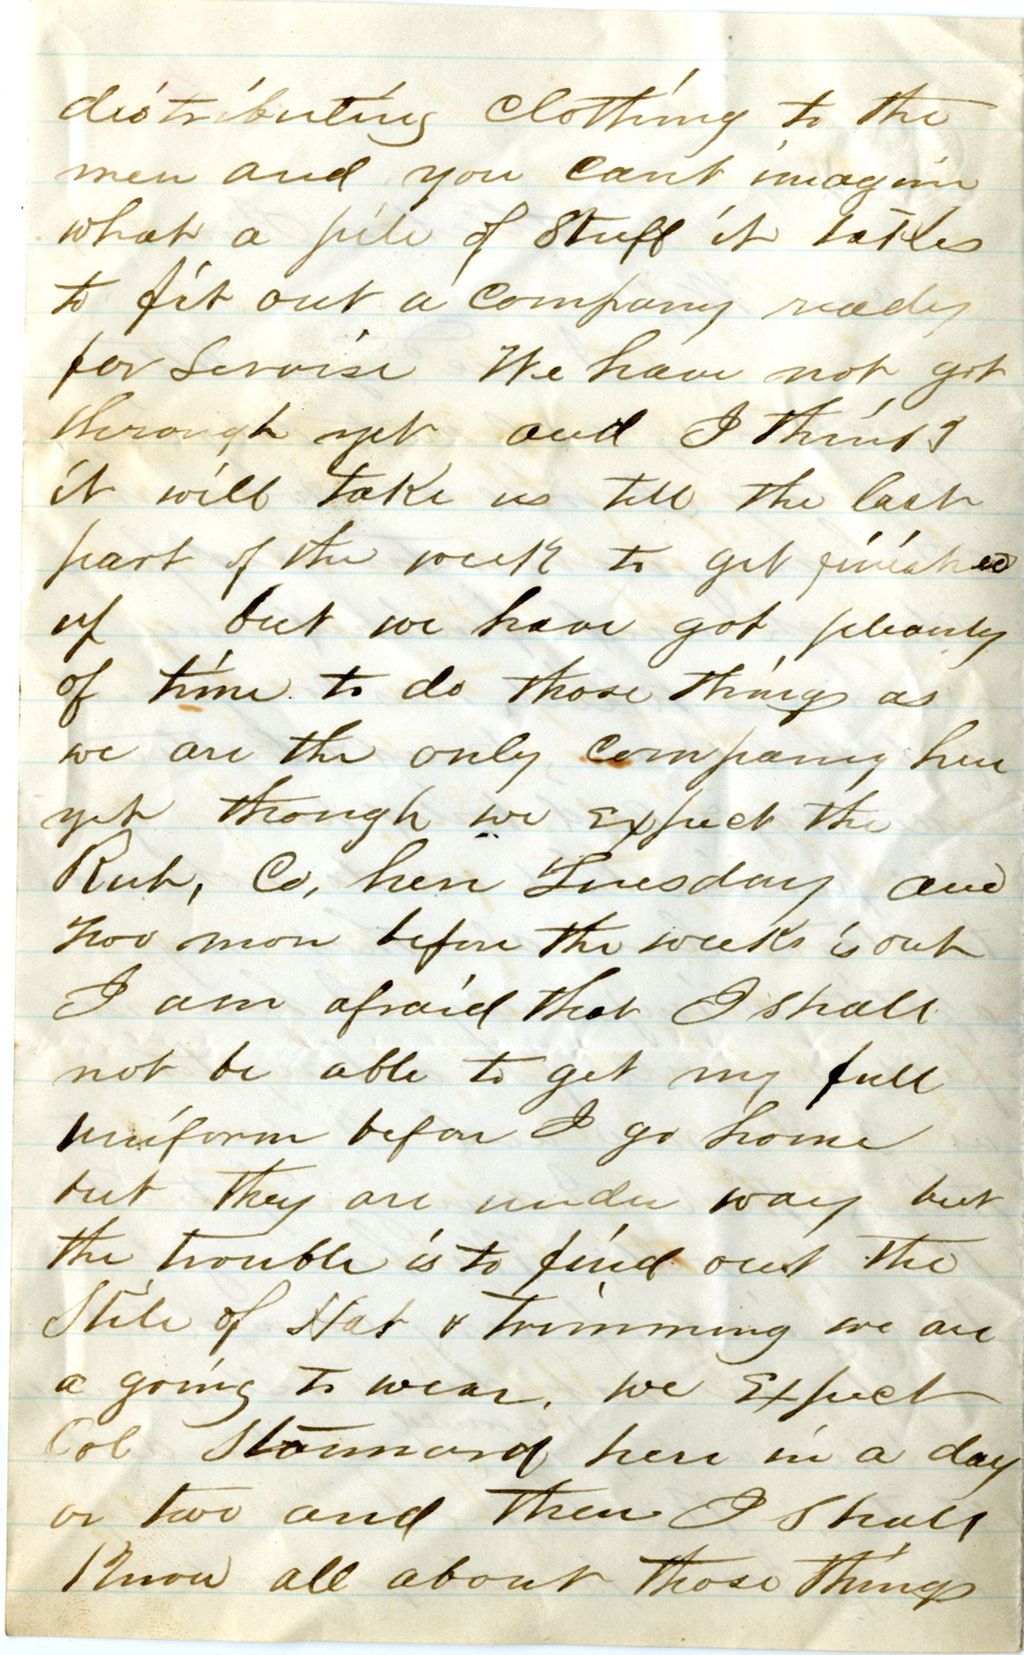 distributing clothing to the
men and you cant imagin
what a pile of Stuff it takes
to fit out a Company ready
for Servise We have not got
through yet and I think
it will take us till the last
part of the week to get finished
up but we have got pleanty
of time to do those things as
we are the only Company here
yet though we Expect the
Rut, Co, here Tuesday and
two more before the weeks is out
I am afraid that I shall
not be able to get my full
uniform before I go home
but they are under way but
the trouble is to find out the
Stile of Hat & Trimming we are
a going to wear. we Expect
Col Stannard here in a day
or two and then I shall
Know all about those things